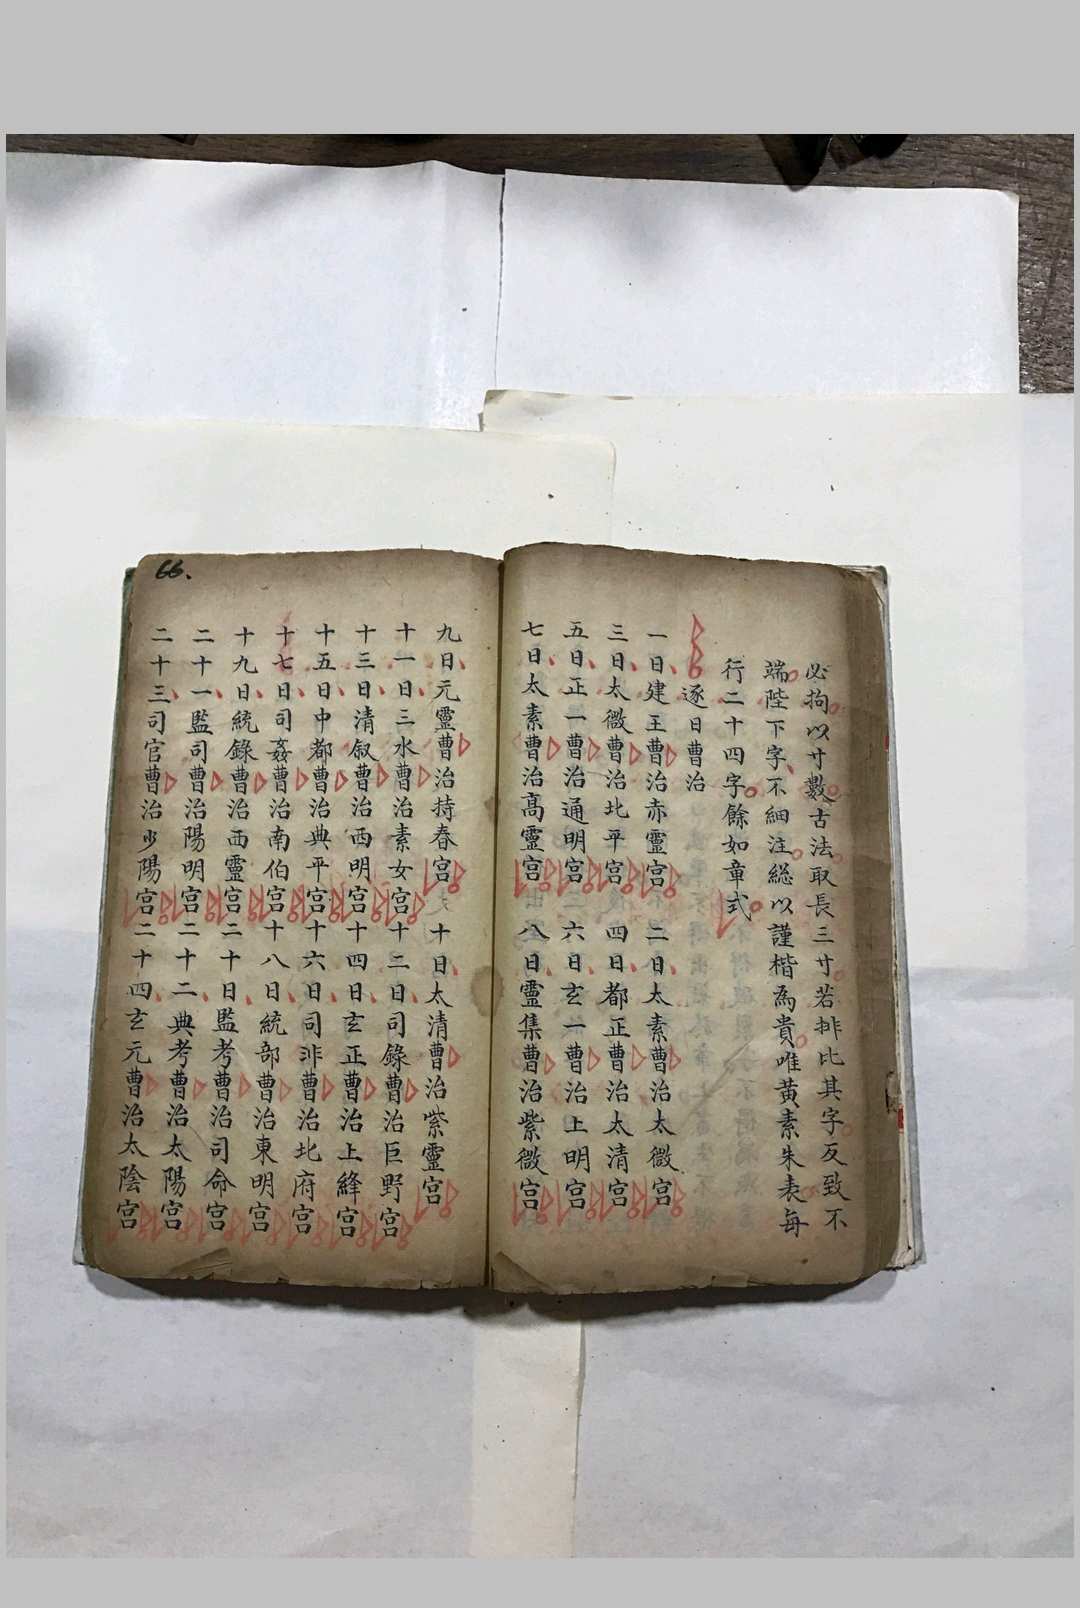 必拘以寸數古法取長三寸若排比其字反致不
端陛下字不細注総以謹楷為貴唯黃素朱表每
行二十四字餘如章式
逐日曹治
一日建王曹治赤靈宮 二日太素曹治太微宮
三日太微曹治北平宮 四日都正曹治太清宮
五日正一曹治通明宮 六日玄一曹治上明宮
七日太素曹治高靈宮 八日靈集曹治紫微宮
66.
九日元靈曹治持春宮 十日太清曹治紫靈宮
十一日三水曹治素女宮 十二日司錄曹治巨野宮
十三日清叙曹治西明宮 十四日玄正曹治上絳宮
十五日中都曹治典平宮 十六日司非曹治北府宮
十七日司姦曹治南伯宮 十八日統部曹治東明宮
十九日統錄曹治西靈宮 二十日監考曹治司命宮
二十一監司曹治陽明宮 二十二典考曹治太陽宮
二十三司官曹治少陽宮 二十四玄元曹治太陰宮